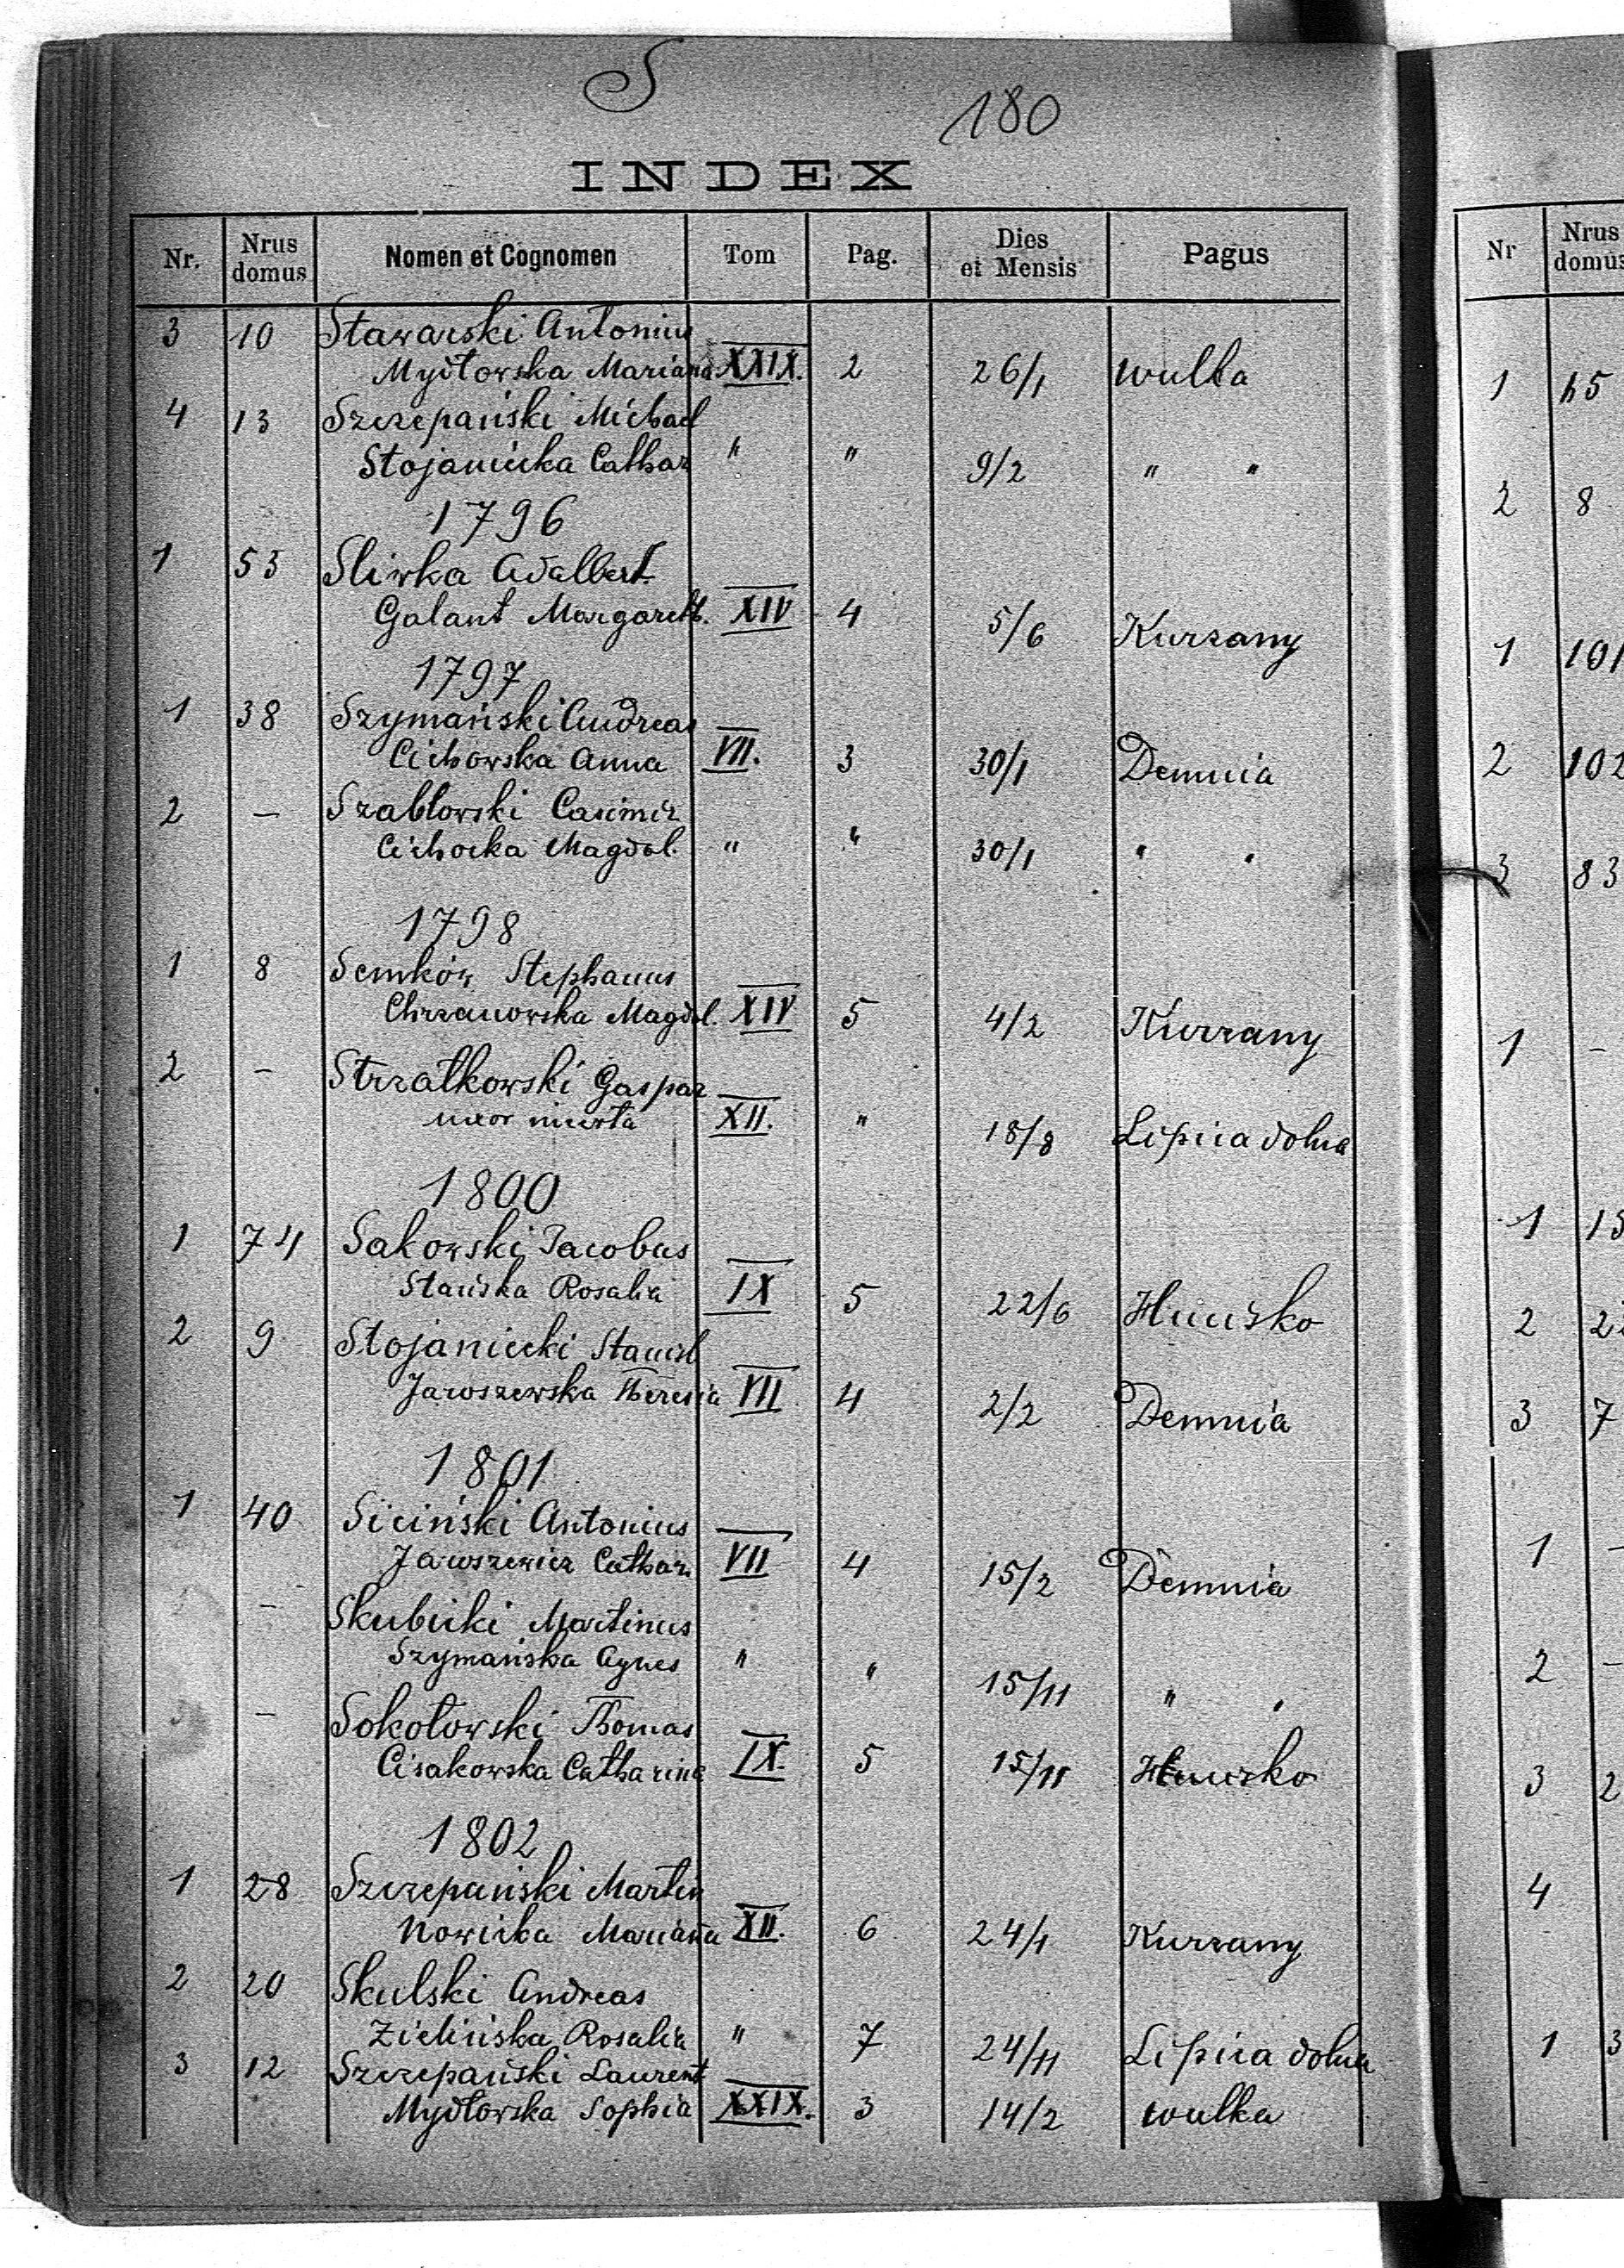 S
180
INDEX
Nr. Nrus domus Nomen et Cognomen Tom Pag. Dies et Mensis Pagus
3 10 Stawarski Antonius
Mydłowska Mariana XXIX. 2 26/1 Wulka
4 13 Szczepański Michael
Stojanicka Cathar " " 9/2 " "
1796
1 53 Sliwka Adalbert
Galant Margareth. XIV 4 5/6 Kurzany
1797
1 38 Szymański Andreas
Cichowska Anna VII. 3 30/1 Demnia
2 — Szabłowski Casimir
Cichocka Magdal. " " 30/1 " "
1798
1 8 Semków Stephanus
Chrzanowska Magdal. XIV 5 4/2 Kurzany
2 — Strzałkowski Gaspar
uxor XII. " 18/8 Lipica dolna
1800
1 74 Sakowski Jacobus
Stańska Rosalia IX 5 22/6 Hucisko
2 9 Stojanicki Stanisl
Jaroszewska Theresia VII 4 2/2 Demnia
1801
1 40 Siciński Antonius
Jaroszewicz Cathar. VII 4 15/2 Demnia
— Skubicki Martinus
Szymańska Agnes " " 15/11 " "
— Sokołowski Thomas
Cisakowska Catharina IX. 5 15/11 Hucisko
1802
1 28 Szczepański Martin
Nowicka Mariana XII. 6 24/1 Kurzany
2 20 Skulski Andreas
Zielińska Rosalia " 7 24/11 Lipica dolna
3 12 Szczepański Laurent
Mydłowska Sophia XXIX. 3 14/2 Wulka
Nr Nrus domus
1 65
2 8
1 101
2 102
3 83
1 -
1
2
3 7
1 -
2 -
3 2
4
1 3